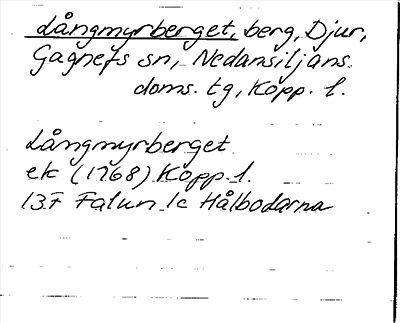 Långmyrberget, berg, Djur,
Gagnefs sn, Nedansiljans
doms. tg, Kopp. l.
Långmyrberget
ek (1968) Kopp. l.
13F Falun 1c Hålbodarna